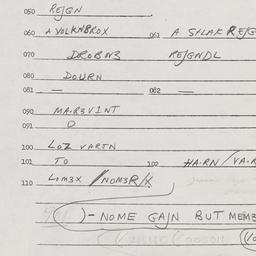 050 REIGN
060 A VOLKNBROX 061 A SPLAK REIG
070 DROBN3 REIGNDL
080 DOURN
081 — 082 —
090 MA.R3VINT
091 O
100 LOZ VARTN
101 TO 102 HA.RN / VA.R
110 LOM3X / NOM3R/X
)- NOME GAIN BUT MEMB